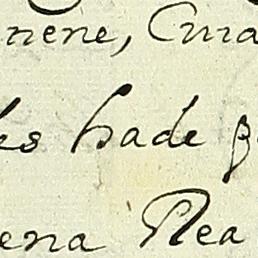 nene, Cura
es hade g
ena Rea